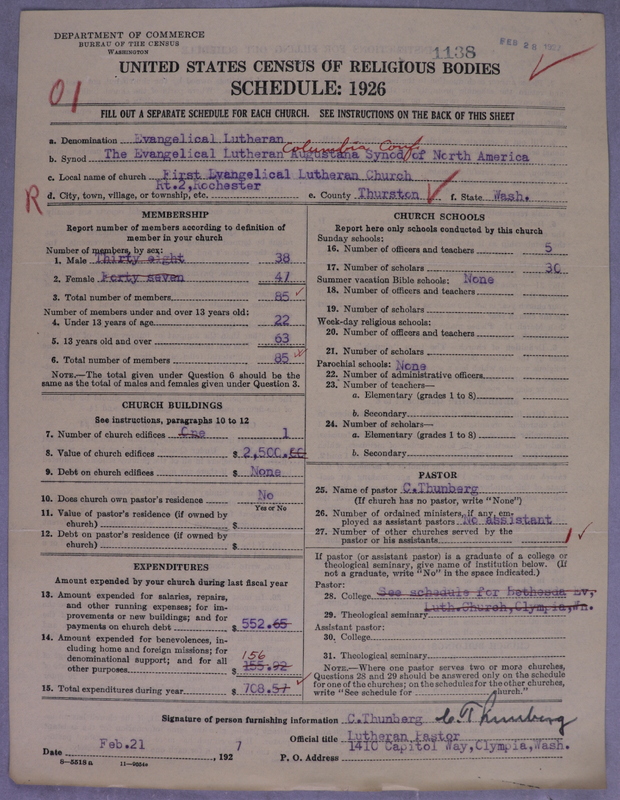 DEPARTMENT OF COMMERCE
BUREAU OF THE CENSUS
WASHINGTON
1138
FEB 28 1927
UNITED STATES CENSUS OF RELIGIOUS BODIES
SCHEDULE: 1926
01
FILL OUT A SEPARATE SCHEDULE FOR EACH CHURCH. SEE INSTRUCTIONS ON THE BACK OF THIS SHEET
a. Denomination Evangelical Lutheran
Columbia Conf.
b. Synod The Evangelical Lutheran Augustana Synod of North America
c. Local name of church First Evangelical Lutheran Church
R
d. City, town, village, or township, etc. Rt.2, Rochester e. County Thurston f. State Wash.
MEMBERSHIP
Report number of members according to definition of
member in your church
Number of members, by sex:
1. Male Thirty eight 38
2. Female Forty seven 47
3. Total number of members 85
Number of members under and over 13 years old:
4. Under 13 years of age 22
5. 13 years old and over 63
6. Total number of members 85
NOTE.—The total given under Question 6 should be the
same as the total of males and females given under Question 3.
CHURCH BUILDINGS
See instructions, paragraphs 10 to 12
7. Number of church edifices One 1
8. Value of church edifices $ 2,500.00
9. Debt on church edifices $ None
10. Does church own pastor's residence No
Yes or No
11. Value of pastor's residence (if owned by
church) $
12. Debt on pastor's residence (if owned by
church) $
EXPENDITURES
Amount expended by church during last fiscal year
13. Amount expended for salaries, repairs,
and other running expenses; for im-
provements or new buildings; and for
payments on church debt $ 552.65
14. Amount expended for benevolences, in-
cluding home and foreign missions; for
denominational support; and for all
156
other purposes $ 155.92
15. Total expenditures during year $ 708.57
CHURCH SCHOOLS
Report here only schools conducted by this church
Sunday schools:
16. Number of officers and teachers 5
17. Number of scholars 30
Summer vacation Bible schools: None
18. Number of officers and teachers
19. Number of scholars
Week-day religious schools:
20. Number of officers and teachers
21. Number of scholars
Parochial schools: None
22. Number of administrative officers
23. Number of teachers—
a. Elementary (grades 1 to 8)
b. Secondary
24. Number of scholars—
a. Elementary (grades 1 to 8)
b. Secondary
PASTOR
25. Name of pastor C.Thunberg
(If church has no pastor, write "None")
26. Number of ordained ministers, if any, em-
ployed as assistant pastors No assistant
27. Number of other churches served by the
pastor or his assistants 1
If pastor (or assistant pastor) is a graduate of a college or
theological seminary, give name of institution below. (If
not a graduate, write "No" in the space indicated.)
Pastor:
28. College See schedule for Bethesda Ev,
29. Theological seminary Luth.Church,Olympia,Wn.
Assistant pastor:
30. College
31. Theological seminary
NOTE.—Where one pastor serves two or more churches,
Questions 28 and 29 should be answered only on the schedule
for one of the churches; on the schedules for the other churches,
write "See schedule for church."
Signature of person furnishing information C.Thunberg C. Thunberg
Official title Lutheran Pastor
Date Feb.21, 1927 P. O. Address 1410 Capitol Way,Olympia,Wash.
8—5518 a